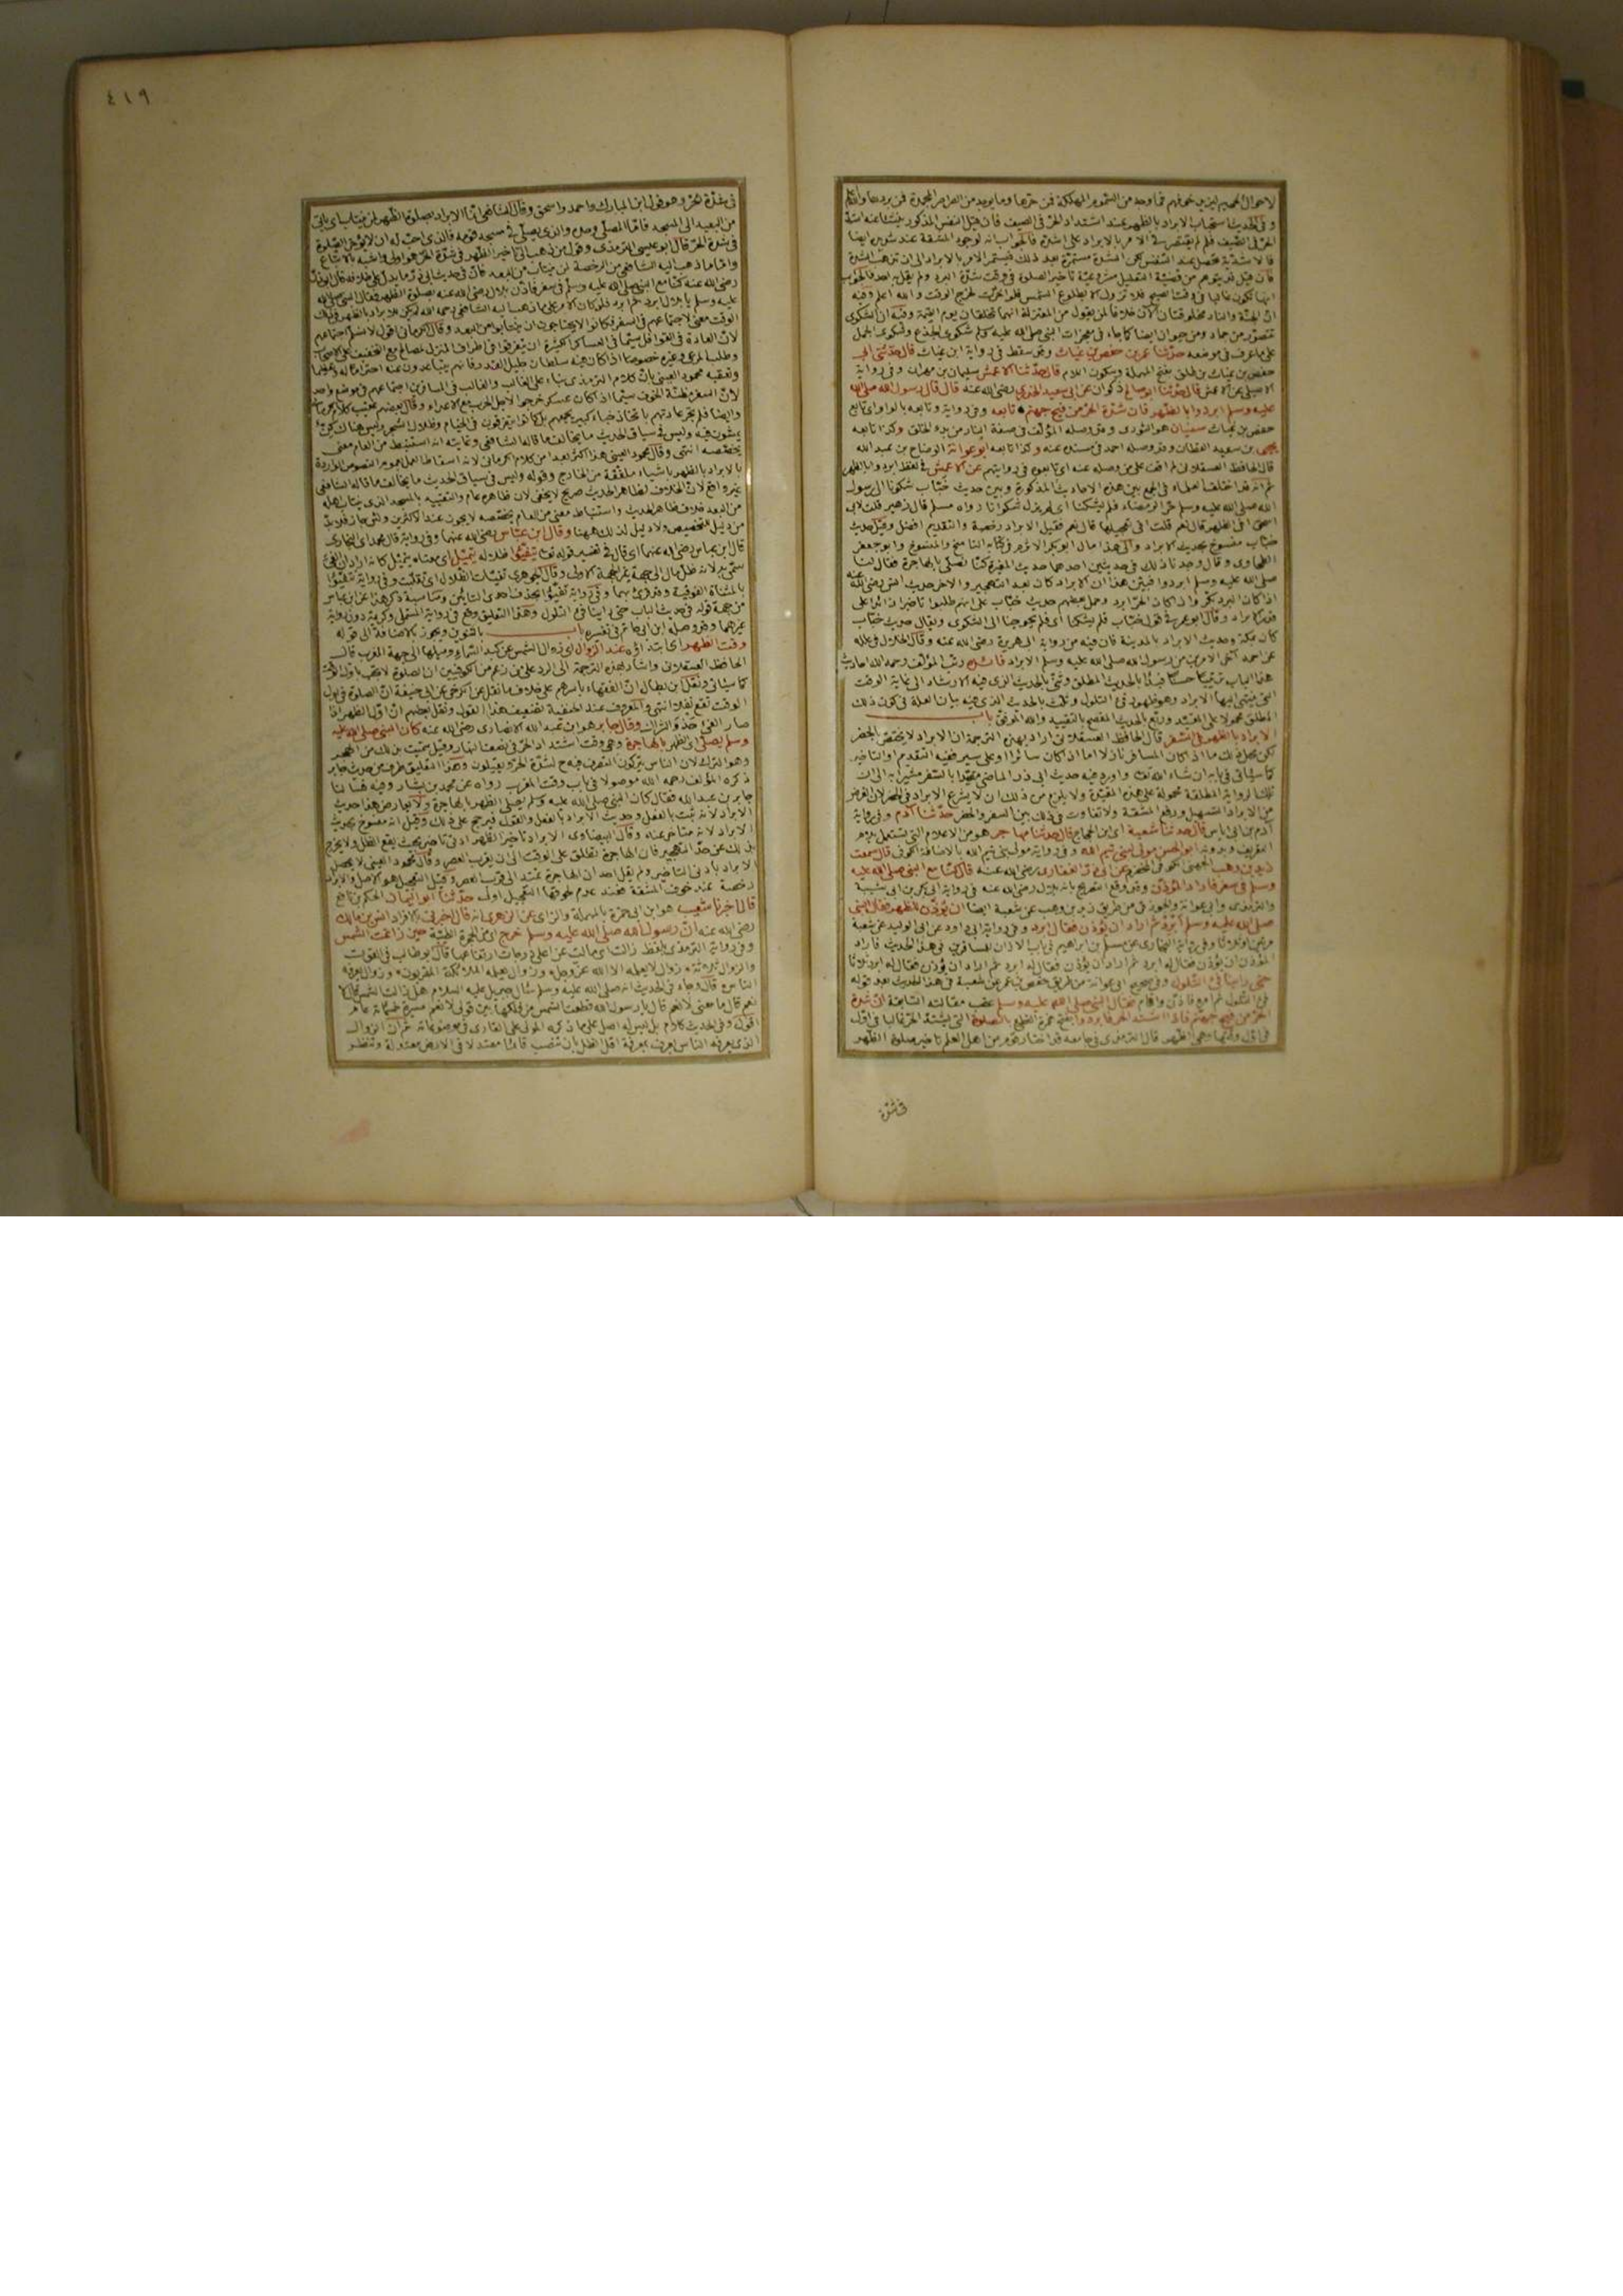 ٤١٩
وفي الحديث استحباب الابراد بالظهر عند اشتداد الحر في الصيف فان قيل النفس المذكور ينشأ عنه اشد
الحر في الصيف فلم لم يقتصر في الامر بالابراد على اشده فالجواب انه لوجود المشقة عند شديد ايضا
فالاشدية تحصل عند التنفس لكن الشدة مستمرة بعد ذلك فيستمر الامر بالابراد الى ان تذهب الشدة
فان قيل قد يتوهم من قضية التعليل مشروعية تأخير الصلوة في وقت شدة البرد ولم يقل به احد فالجواب
انها تكون غالبا في وقت الصبح فلا تزول الا بطلوع الشمس فلو اخرت لخرج الوقت والله اعلم وفيه
ان الجنة والنار مخلوقتان الآن خلافا لمن يقول من المعتزلة انهما تخلقان يوم القيمة وفيه ان الشكوى
تتصور من جماد ومن حيوان ايضا كما جاء في معجزات النبي صلى الله عليه وسلم شكوى الجذع وشكوى الجمل
على ما عرف في موضعه حدثنا عمر بن حفص بن غياث وقد سقط في رواية ابن غياث قال حدثني ابي
حفص بن غياث بن طلق بفتح المهملة وسكون اللام قال حدثنا الاعمش سليمان بن مهران وفي رواية
الاصيلي عن الاعمش قال حدثنا ابو صالح ذكوان عن ابي سعيد الخدري رضي الله عنه قال قال رسول الله صلى الله
عليه وسلم ابردوا بالظهر فان شدة الحر من فيح جهنم تابعه وفي رواية وتابعه بالواو اي تابع
حفص بن غياث سفيان هو الثوري وقد وصله المؤلف في صفة النار من بدء الخلق وكذا تابعه
يحيى بن سعيد القطان وقد وصله احمد في مسنده عنه وكذا تابعه ابو عوانة الوضاح بن عبد الله
قال الحافظ العسقلاني لم اقف على من وصله عنه اي تابعوه في روايتهم عن الاعمش في لفظ ابردوا بالظهر
ثم انه قد اختلف العلماء في الجمع بين هذه الاحاديث المذكورة وبين حديث خباب شكونا الى رسول
الله صلى الله عليه وسلم حر الرمضاء فلم يشكنا اي لم يزل شكوانا رواه مسلم قال زهير قلت لابي
اسحق افي الظهر قال نعم قلت افي تعجيلها قال نعم فقيل الابراد رخصة والتقديم افضل وقيل حديث
خباب منسوخ بحديث الابراد والى هذا مال ابو بكر الاثرم في كتابه الناسخ والمنسوخ وابو جعفر
الطحاوي وقال وجدنا ذلك في حديثين احدهما حديث المغيرة كنا نصلي بالهاجرة فقال لنا
صلى الله عليه وسلم ابردوا فبين هذا ان الابراد كان بعد التهجير والاخر حديث انس رضي الله عنه
اذا كان البرد بكروا واذا كان الحر ابردوا وحمل بعضهم حديث خباب على انهم طلبوا تأخيرا زائدا على
قدر الابراد وقال ابو عمر في قول خباب فلم يشكنا اي فلم يحوجنا الى الشكوى ويقال حديث خباب
كان بمكة وحديث الابراد بالمدينة فان فيه من رواية ابي هريرة رضي الله عنه وقال الخلال في علله
عن احمد آخر الامرين من رسول الله صلى الله عليه وسلم الابراد فائدة رتب المؤلف رحمه الله احاديث
هذا الباب ترتيبا حسنا فبدأ بالحديث المطلق وثنى بالحديث الذي فيه الارشاد الى غاية الوقت
التي ينتهي اليها الابراد وهو ظهور فيء التلول وثلث بالحديث الذي فيه بيان العلة في كون ذلك
المطلق محمولا على المقيد وربع بالحديث المفصح بالتقييد والله الموفق باب
الابراد بالظهر في السفر قال الحافظ العسقلاني اراد بهذه الترجمة ان الابراد لا يختص بالحضر
لكن محل ذلك ما اذا كان المسافر نازلا اما اذا كان سائرا او على سير ففيه التقديم او التأخير
كما سيأتي في بابه ان شاء الله تعالى واورد فيه حديث ابي ذر الماضي مقيدا بالسفر مشيرا به الى ان
تلك الرواية المطلقة محمولة على هذه المقيدة
من الابراد التسهيل ورفع المشقة ولا تفاوت في ذلك بين السفر والحضر حدثنا آدم وفي رواية
آدم بن ابي اياس قال حدثنا شعبة اي ابن الحجاج قال حدثنا مهاجر هو من الاعلام التي تستعمل بلام
التعريف وبدونه ابو الحسن مولى لبني تيم الله وفي رواية مولى بني تيم الله بالاضافة الكوفي قال سمعت
زيد بن وهب الجهني الكوفي المخضرم عن ابي ذر الغفاري رضي الله عنه قال كنا مع النبي صلى الله عليه
وسلم في سفر فاراد المؤذن وقد وقع التصريح بانه بلال رضي الله عنه في رواية ابي بكر بن ابي شيبة
والترمذي وابي عوانة والجوزقي من طريق زيد بن وهب عن شعبة ايضا ان يؤذن للظهر فقال النبي
صلى الله عليه وسلم ابرد ثم اراد ان يؤذن فقال له ابرد وفي رواية ابي داود عن ابي الوليد عن شعبة
مرتين او ثلاثا وفي رواية البخاري عن مسلم بن ابراهيم في باب الاذان للمسافرين في هذا الحديث فاراد
المؤذن ان يؤذن فقال له ابرد ثم اراد ان يؤذن فقال له ابرد ثم اراد ان يؤذن فقال له ابرد ثلاثا
حتى رأينا فيء التلول وفي صحيح ابي عوانة من طريق حفص بن عمر عن شعبة في هذا الحديث بعد قوله
فيء التلول ثم امره فاذن واقام فقال النبي صلى الله عليه وسلم عقب مقالته السابقة ان شدة
الحر من فيح جهنم فاذا اشتد الحر فابردوا بالصلوة التي يشتد الحر غالبا في اول
وقتها وهي الظهر قال الترمذي في جامعه قد اختار قوم من اهل العلم تأخير صلوة الظهر
في شدة
في شدة الحر وهو قول ابن المبارك واحمد واسحق وقال الشافعي انما الابراد بصلوة الظهر لمن ينتاب اي يأتي
من البعيد الى المسجد فاما المصلي وحده والذي يصلي في مسجد قومه فالذي احب له ان لا يؤخر الصلوة
في شدة الحر قال ابو عيسى الترمذي وقول من ذهب الى تأخير الظهر في شدة الحر هو اولى واشبه بالاتباع
واما ما ذهب اليه الشافعي من الرخصة لمن ينتاب من البعد فان في حديث ابي ذر ما يدل على خلافه قال ابو ذر
رضي الله عنه كنا مع النبي صلى الله عليه وسلم في سفر فاذن بلال رضي الله عنه بصلوة الظهر فقال النبي صلى الله
عليه وسلم يا بلال ابرد ثم ابرد فلو كان الامر على ما ذهب اليه الشافعي رحمه الله لم يكن للابراد في ذلك
الوقت معنى لاجتماعهم في السفر فكانوا لا يحتاجون ان ينتابوا من البعد وقال الكرماني اقول لا نسلم اجتماعهم
لان العادة في القوافل سيما في العساكر الكثيرة ان يتفرقوا في اطراف المنزل لمصالح مع التخفيف على الاصحاب
وطلب المرعى وغيره خصوصا اذا كان فيه سلطان جليل القدر فانهم يتباعدون عنه احتراما له وتعظيما
وتعقبه محمود العيني بان كلام الترمذي بناء على الغالب والغالب في المسافرين اجتماعهم في موضع واحد
لان السفر مظنة الخوف سيما اذا كان عسكر خرجوا لاجل الحرب مع الاعداء
يمشون فيه وليس في سياق الحديث ما يخالف ما قاله الشافعي وغايته انه استنبط من العام معنى
يخصصه انتهى وقال محمود العيني هذا اكثر بعدا من كلام الكرماني لانه اسقاط العمل بعموم النصوص الواردة
بالابراد بالظهر باشياء ملفقة من الخارج وقوله وليس في سياق الحديث ما يخالف ما قاله الشافعي
غير واقع لان الخلاف لظاهر الحديث صريح لا يخفى لان ظاهره عام والتقييد بالمسجد الذي ينتاب اهله
من البعد خلاف ظاهر الحديث واستنباط معنى من العام يخصصه لا يجوز عند الاكثرين ولئن جاز فلا بد
من دليل للتخصيص ولا دليل لذلك ههنا وقال ابن عباس رضي الله عنهما وفي رواية قال محمد اي البخاري
قال ابن عباس رضي الله عنهما اي قال في تفسير قوله تعالى يتفيؤ ظلاله يتميل اي معناه يتميل كانه اراد ان الفيء
سمي به لانه ظل مال الى جهة غير الجهة الاولى وقال الجوهري تفيأت الظلال اي تقلبت وفي رواية تتفيؤ
بالمثناة الفوقية
من جهة قوله في حديث الباب حتى رأينا فيء التلول وهذا التعليق وقع في رواية المستملي وكريمة دون رواية
غيرهما وقد وصله ابن ابي حاتم في تفسيره باب بالتنوين ويجوز بالاضافة الى قوله
وقت الظهر اي ابتداؤه عند الزوال اي زوال الشمس عن كبد السماء وميلها الى جهة المغرب قال
الحافظ العسقلاني واشار بهذه الترجمة الى الرد على من زعم من الكوفيين ان الصلوة لا تجب باول الوقت
كما سيأتي ونقل ابن بطال ان الفقهاء باسرهم على خلاف ما نقل عن الكرخي عن ابي حنيفة ان الصلوة في اول
الوقت تقع نفلا انتهى والمعروف عند الحنفية تضعيف هذا القول ونقل بعضهم ان اول الظهر اذا
صار الفيء قدر الشراك وقال جابر هو ابن عبد الله الانصاري رضي الله عنه كان النبي صلى الله عليه
وسلم يصلي الظهر بالهاجرة وهي وقت اشتداد الحر في نصف النهار وقيل سميت بذلك من الهجر
وهو الترك لان الناس يتركون التصرف فيه ح لشدة الحر ويقيلون وهذا التعليق طرف من حديث جابر
ذكره المؤلف رحمه الله موصولا في باب وقت المغرب رواه عن محمد بن بشار وفيه
جابر بن عبد الله فقال كان النبي صلى الله عليه وسلم يصلي الظهر بالهاجرة ولا يعارض هذا حديث
الابراد لانه ثبت بالفعل وحديث الابراد بالفعل والقول فيرجح على ذلك وقيل انه منسوخ بحديث
الابراد لانه متأخر عنه وقال البيضاوي الابراد تأخير الظهر ادنى تأخير بحيث يقع الظل ولا يخرج
بذلك عن حد التهجير فان الهاجرة تطلق على الوقت الى ان يقرب العصر وقال محمود العيني لا يحصل
الابراد بادنى التأخير ولم يقل احد ان الهاجرة تمتد الى قرب العصر وقيل التعجيل هو الاصل والابراد
رخصة عند خوف المشقة فعند عدم لحوقها التعجيل اولى حدثنا ابو اليمان الحكم بن نافع
قال اخبرنا شعيب هو ابن ابي حمزة بالمهملة والزاي عن الزهري انه قال اخبرني بالافراد انس بن مالك
رضي الله عنه ان رسول الله صلى الله عليه وسلم خرج حين زاغت الشمس
وفي رواية الترمذي بلفظ زالت اي مالت عن اعلى درجات ارتفاعها قال ابو طالب في القوت
والزوال ثلاثة زوال لا يعلمه الا الله عز وجل وزوال يعلمه الملائكة المقربون وزوال يعرفه
الناس قال وجاء في الحديث انه صلى الله عليه وسلم سأل جبريل عليه السلام هل زالت الشمس قال لا
نعم قال ما معنى لا نعم قال يا رسول الله قطعت الشمس من فلكها بين قولي لا نعم مسيرة خمسمائة عام
الذي يعرفه الناس يعرف بمعرفة اقل الظل بان تنصب قائما معتدلا في الارض معتدلة وتنظر